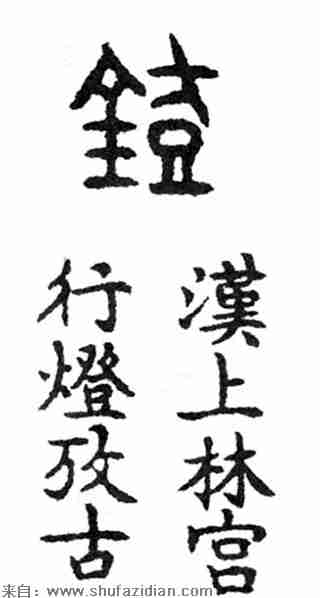 鐙
漢上林宮
行燈攷古
来自：www.shufazidian.com